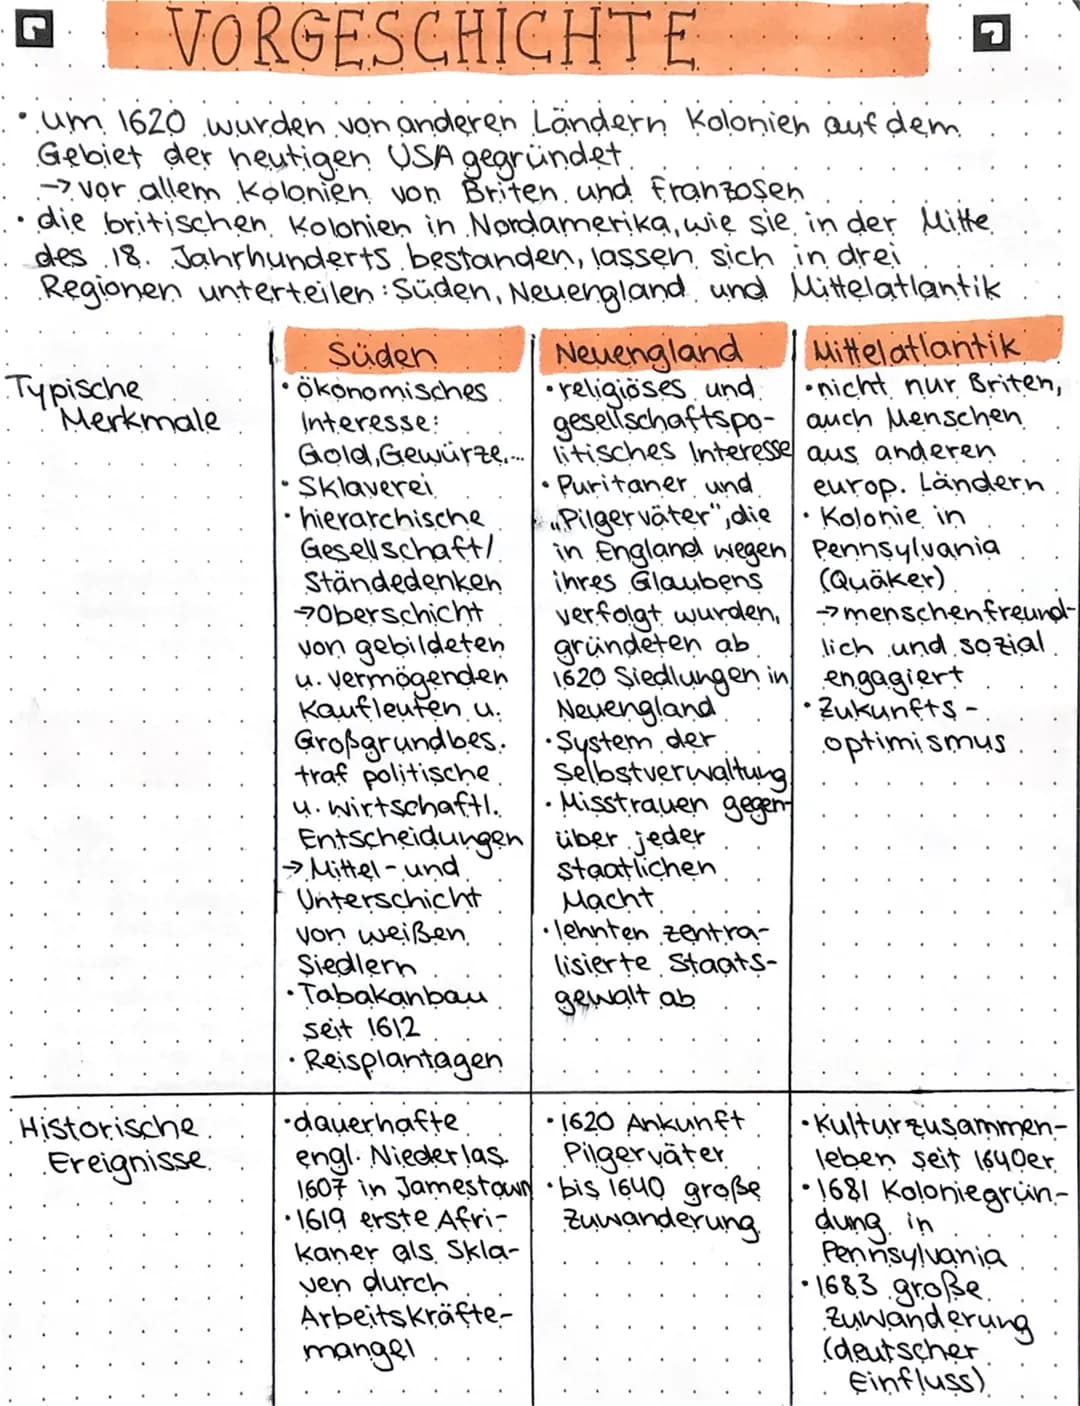 VORGESCHICHTE
• um 1620 wurden von anderen Ländern Kolonien auf dem
Gebiet der heutigen USA gegründet
→ vor allem Kolonien von Briten und Franzosen
• die britischen Kolonien in Nordamerika, wie sie in der Mitte
des 18. Jahrhunderts bestanden, lassen sich in drei
Regionen unterteilen: Süden, Neuengland und Mittelatlantik
Süden
Neuengland
Mittelatlantik
Typische
Merkmale
• ökonomisches
Interesse:
Gold, Gewürze,...
• Sklaverei
• hierarchische
Gesellschaft/
Ständedenken
→ Oberschicht
von gebildeten
u. vermögenden
Kaufleuten u.
Großgrundbes.
traf politische
u. wirtschaftl.
Entscheidungen
→ Mittel- und
Unterschicht
von weißen
Siedlern
• Tabakanbau
seit 1612
• Reisplantagen
• religiöses und
gesellschaftspo-
litisches Interesse
• Puritaner und
„Pilgerväter“, die
in England wegen
ihres Glaubens
verfolgt wurden,
gründeten ab
1620 Siedlungen in
Neuengland
• System der
Selbstverwaltung
• Misstrauen gegen-
über jeder
staatlichen
Macht
• lehnten zentra-
lisierte Staats-
gewalt ab
• nicht nur Briten,
auch Menschen
aus anderen
europ. Ländern
• Kolonie in
Pennsylvania
(Quäker)
→ menschenfreund-
lich und sozial
engagiert
• Zukunfts-
optimismus
Historische
Ereignisse
• dauerhafte
engl. Niederlas.
1607 in Jamestown
• 1619 erste Afri-
kaner als Skla-
ven durch
Arbeitskräfte-
mangel
• 1620 Ankunft
Pilgerväter
• bis 1640 große
Zuwanderung
• Kulturzusammen-
leben seit 1640er
• 1681 Koloniegrün-
dung in
Pennsylvania
• 1683 große
Zuwanderung
(deutscher
Einfluss)